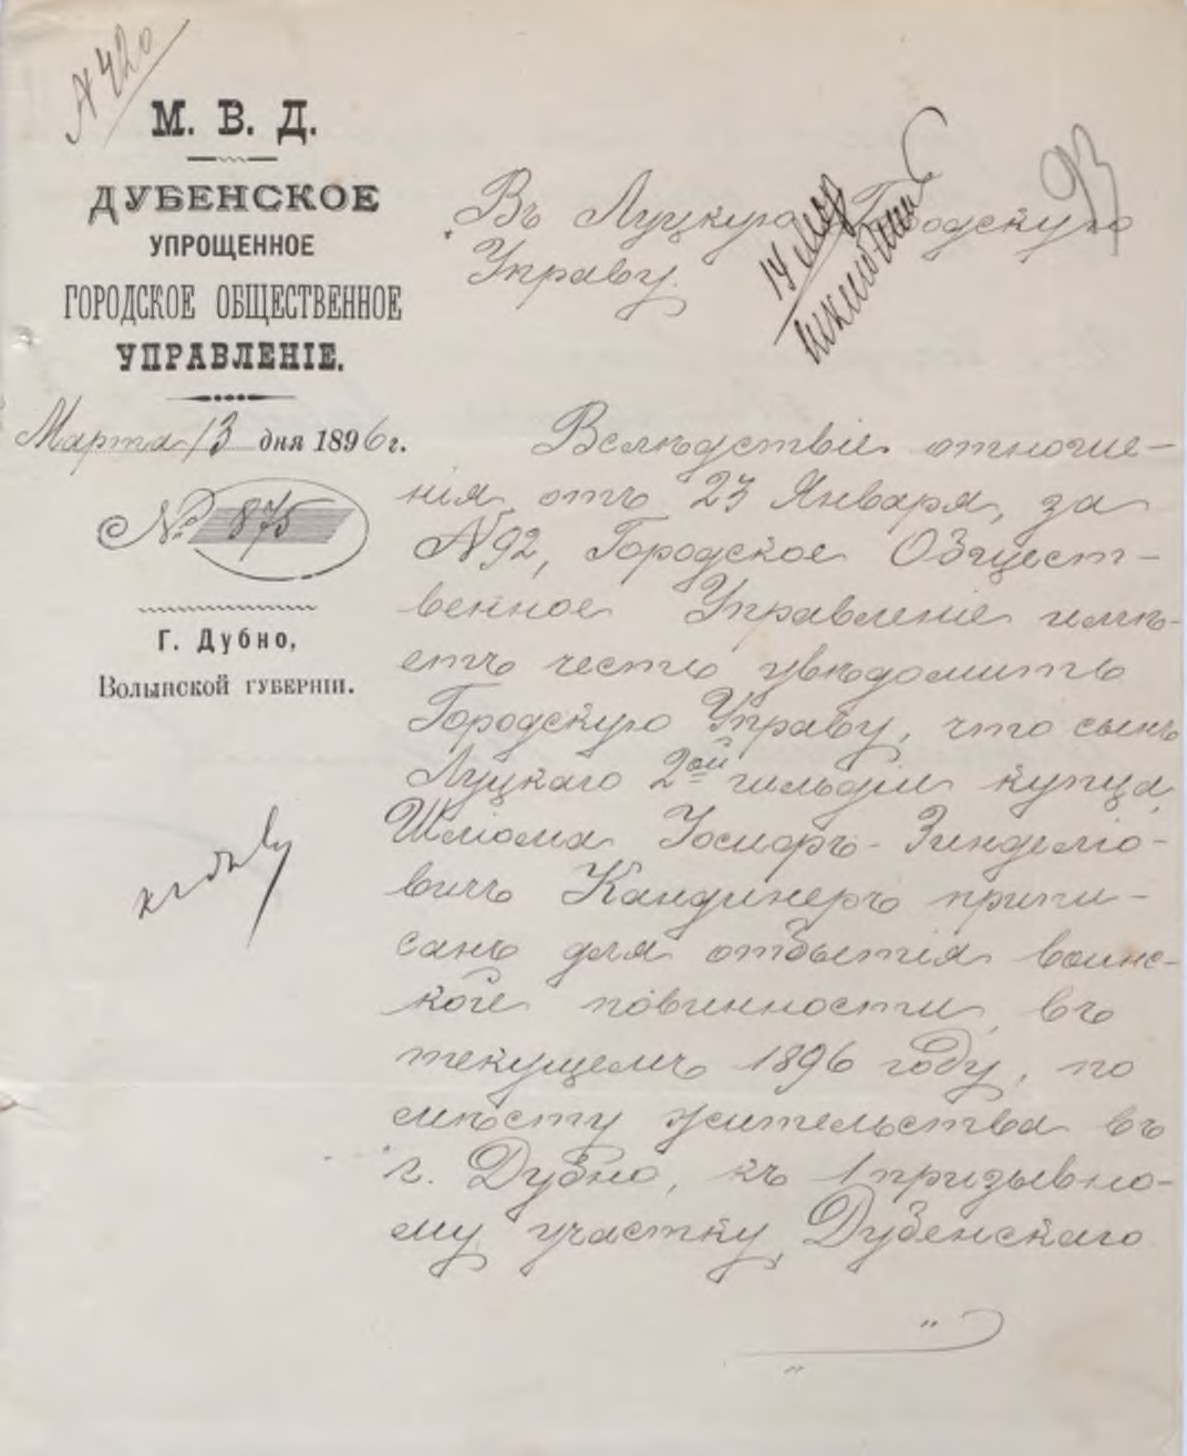 № 420
М. В. Д.
ДУБЕНСКОЕ
УПРОЩЕННОЕ
ГОРОДСКОЕ ОБЩЕСТВЕННОЕ
УПРАВЛЕНІЕ.
Марта 13 дня 1896 г.
№ 875
Г. Дубно,
Волынской губерніи.
93
Въ Луцкую Городскую
Управу.
14 Мар
Вслѣдствіе отноше-
нія отъ 23 Января, за
№92, Городское Общест-
венное Управленіе имѣ-
етъ честь увѣдомить
Городскую Управу, что сынъ
Луцкаго 2ой гильдіи купца,
Шліома Іосифъ-Зинделіо-
вичъ Кандинеръ припи-
санъ для отбытія воинс-
кой повинности, въ
текущемъ 1896 году, по
мѣсту жительства въ
г. Дубно, къ 1 призывно-
му участку, Дубенскаго